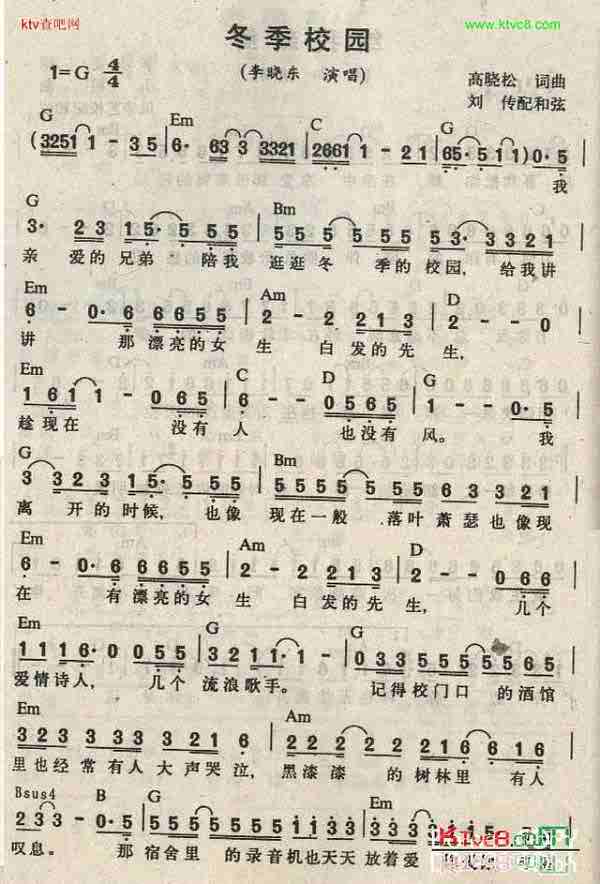 ktv查吧网
www.ktvc8.com
冬季校园
1=G 4/4
(李晓东 演唱)
高晓松 词曲
刘 传配和弦
G Em C G
(3251 1 - 35 | 6· 63 3 3321 | 2661 1 - 21 | 65·5 11) 0·5 |
我
G Bm
3· 23 15·5·55 | 555 555 53·3321 |
亲 爱的兄弟 陪我 逛逛冬 季的校园,给我讲
Em Am D
6 - 0·6 6655 | 2 - 2 2213 | 2 - - 0 |
讲 那漂亮的女 生 白发的先 生,
Em C D G
1 61 1 - 065 | 6 - - 0565 | 1 - - 0·5 |
趁现在 没有 人 也没有 风。 我
G Bm
3 323 15·5·55 | 5555 5 653 3321 |
离 开的时候, 也像 现在一般 落叶萧瑟也像现
Em Am D
6 - 0·6 6655 | 2 - 2 2213 | 2 - - 066 |
在 有漂亮的女 生 白发的先生, 几个
Em G G
1116·055 | 3211· - | 0335 555565 |
爱情诗人, 几个 流浪歌手。 记得校门口 的酒馆
Em Am
323 323 321 6 | 222 2221 6 16 |
里也经常有人大声哭泣,黑漆漆 的树林里 有人
Bsus4 B G Em
叹息。 那宿舍里 的录音机也天天 放着爱
Ktvc8.com